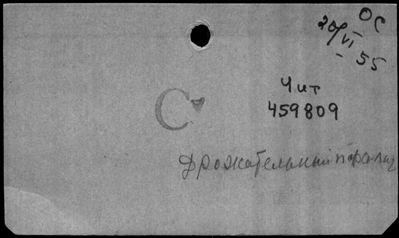 ОС
20/VI
- 55
Чит
459809
С
Дрожательный паралич